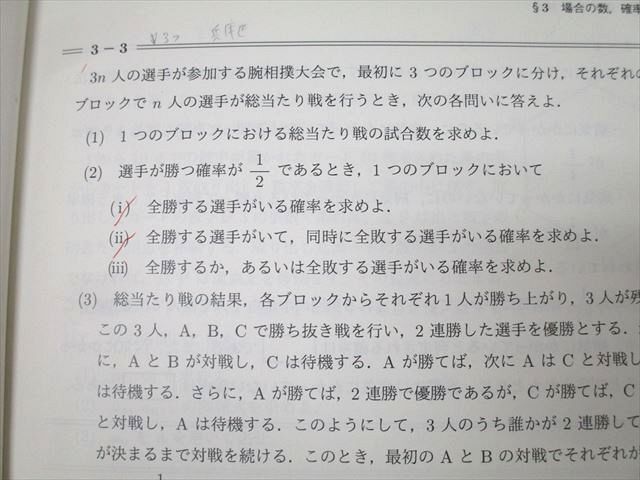 §3 場合の数，確率
3－3
3n 人の選手が参加する腕相撲大会で，最初に 3 つのブロックに分け，それぞれの
ブロックで n 人の選手が総当たり戦を行うとき，次の各問いに答えよ．
(1) 1 つのブロックにおける総当たり戦の試合数を求めよ．
(2) 選手が勝つ確率が 1/2 であるとき，1 つのブロックにおいて
(i) 全勝する選手がいる確率を求めよ．
(ii) 全勝する選手がいて，同時に全敗する選手がいる確率を求めよ．
(iii) 全勝するか，あるいは全敗する選手がいる確率を求めよ．
(3) 総当たり戦の結果，各ブロックからそれぞれ 1 人が勝ち上がり，3 人が残
この 3 人，A，B，C で勝ち抜き戦を行い，2 連勝した選手を優勝とする．
に，A と B が対戦し，C は待機する．A が勝てば，次に A は C と対戦し
は待機する．さらに，A が勝てば，2 連勝で優勝であるが，C が勝てば，C
と対戦し，A は待機する．このようにして，3 人のうち誰かが 2 連勝して
が決まるまで対戦を続ける．このとき，最初の A と B の対戦でそれぞれが
1